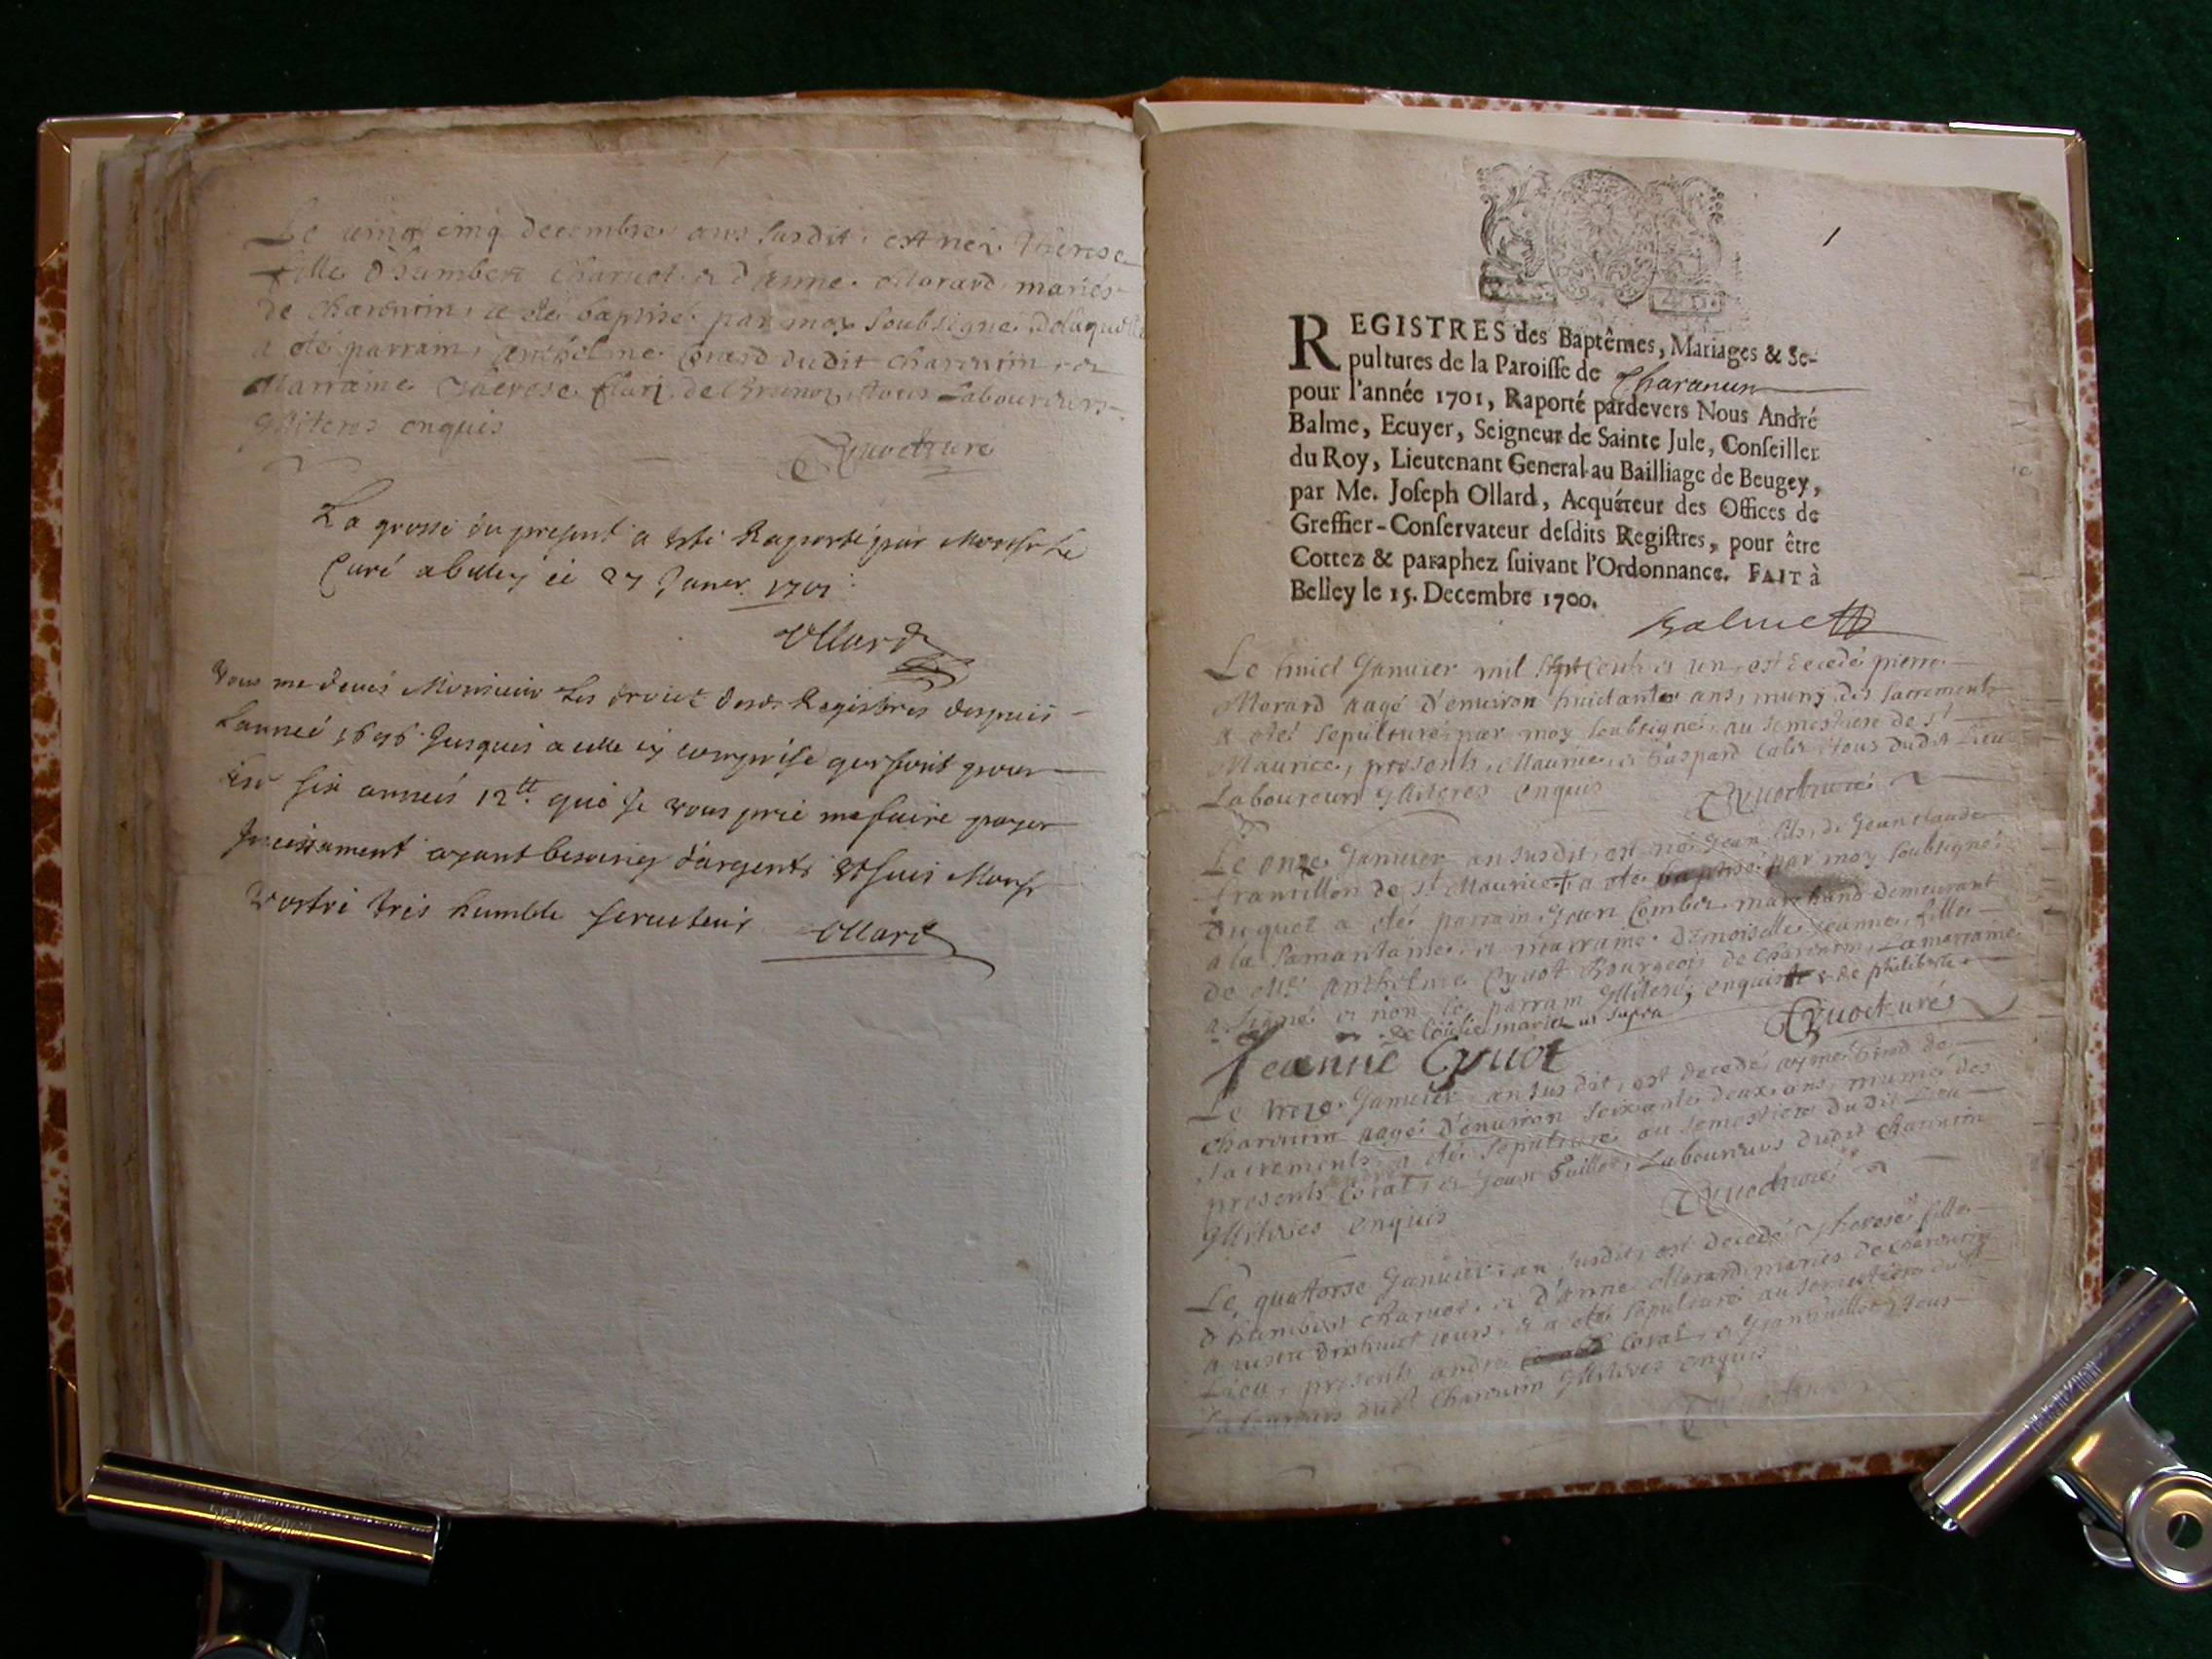 Le vingt cinq decembre ans susdit est neé Therese
fille d'humbert Charvet & d'anne Morard mariés
de Charencin, a eté baptisé par moy soubsigné
a eté parrain, anthelme dudit Charencin &
Marraine Therese de tous Laboureurs
illiteres enquis
La grosse du present a esté Raporté par Monsr le
Curé a belley ce 27 Janvr. 1701
Ollard
Vous me devés Monsieur Les droict desd. Registres despuis
Lanneé 1696 Jusques a celle cy comprise qui font pour
six anneés 12tt. que Je vous prie me faire payer
Incessament ayant besoing d'argent & suis Monsr
Vostre tres humble serviteur Ollard
1
REGISTRES des Baptêmes, Mariages & Se-
pultures de la Paroisse de Charancin
pour l'année 1701, Raporté pardevers Nous André
Balme, Ecuyer, Seigneur de Sainte Jule, Conseiller
du Roy, Lieutenant General au Bailliage de Beugey,
par Me. Joseph Ollard, Acquéreur des Offices de
Greffier-Conservateur desdits Registres, pour être
Cottez & paraphez suivant l'Ordonnance. FAIT à
Belley le 15. Decembre 1700.
Balme
Le huict Janvier mil sept Cents & un, est decedé pierre
Morard aagé d'environ huictante ans, muny des sacrements
a eté sepulturé par moy soubsigné, au semestiere de st
Maurice, presents, Maurice & Gaspard tous dudit Lieu
Laboureurs illiteres enquis
Le onze Janvier an susdit, est né Jean fils de Jean claude
framillon de st Maurice + a eté baptisé par moy soubsigné
Duquel a eté parrain Jean Combet marchand demeurant
a la samaritaine & marraine demoiselle Jeanne fille
de Mre anthelme Cyvot Bourgeois de Charencin, La marraine
a signé & non le parrain illiteré enquis + & de philiberte
mariés ut supra
Jeanne Cyvot
Le treze Janvier an susdit, est decedé aymé de
Charencin aagé d'environ soixante deux ans, muni des
sacrements, a eté sepulturé au semestiere dudit Lieu
presents & Jean Laboureurs dudit Charencin
illiteres enquis
Le quattorse Janvier an susdit, est decedé Therese fille
d'humbert Charvet & d'anne Morard mariés de Charencin
a vescu dixhuict jours, & a eté sepulturé au semestiere dudt
Lieu, presents andré & Jean tous
Laboureurs dudt Charencin illiteres enquis